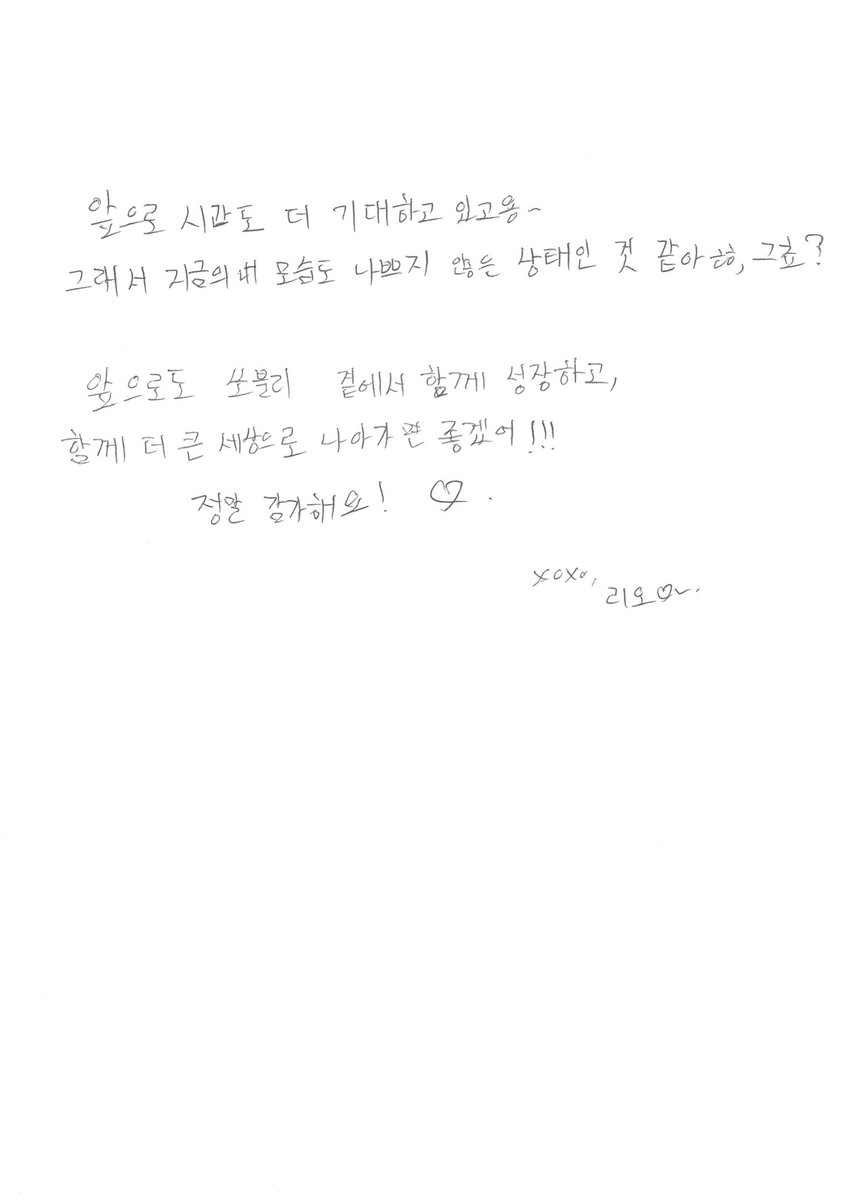 앞으로 시간도 더 기대하고 있고용~
그래서 지금의 내 모습도 나쁘지 않은 상태인 것 같아 흐흐, 그쵸?
앞으로도 쏘불리 곁에서 함께 성장하고,
함께 더 큰 세상으로 나아가면 좋겠어!!!
정말 감사해요! ♡.
xoxo,
리오♡~.